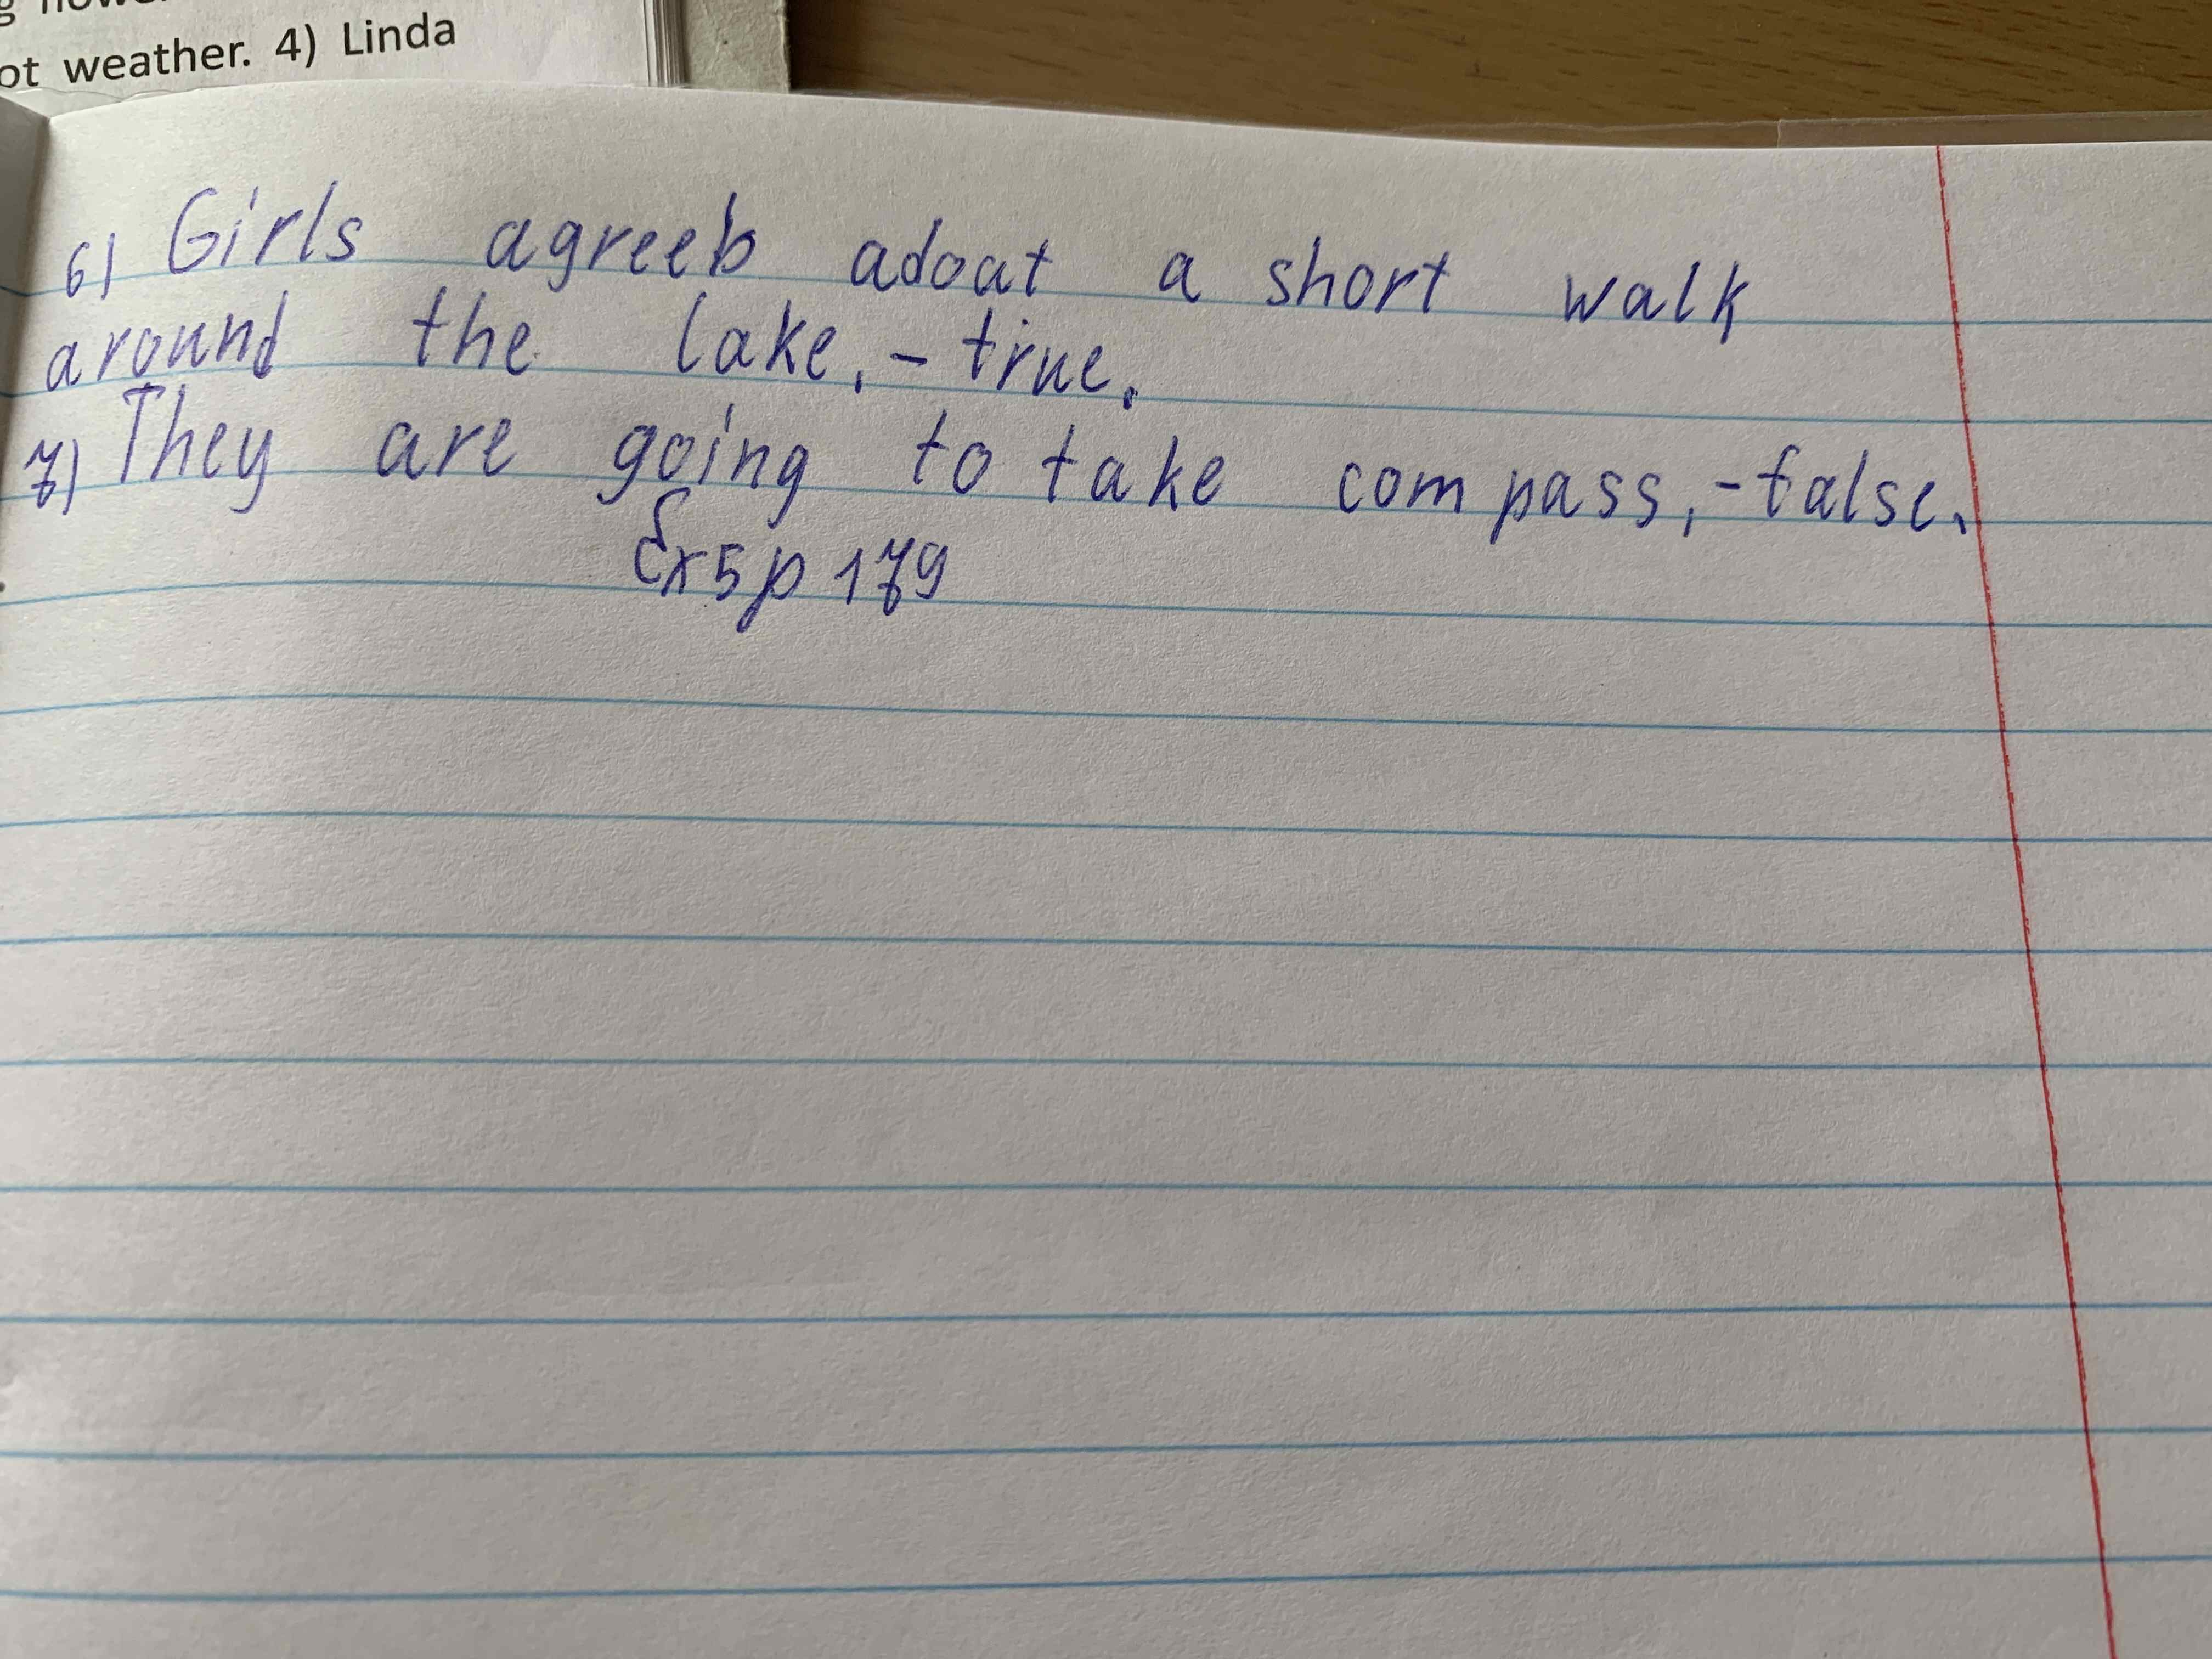 ot weather. 4) Linda
6) Girls agreeb adoat a short walk
around the lake, - true.
7) They are going to take compass, - false.
Ex5p 179